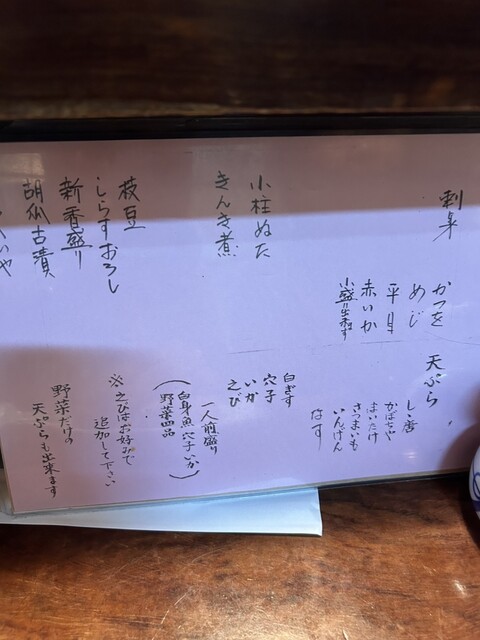 刺身
かつを
めじ
平貝
赤いか
小盛り出来ます
小柱ぬた
きんき煮
枝豆
しらすおろし
新香盛り
胡瓜古漬
天ぷら
し唐
かぼちゃ
まいたけ
さつまいも
いんげん
なす
白ぎす
穴子
いか
えび
一人前盛り
(白身魚 穴子 いか
野菜四品)
※えびはお好みで
追加して下さい
野菜だけの
天ぷらも出来ます